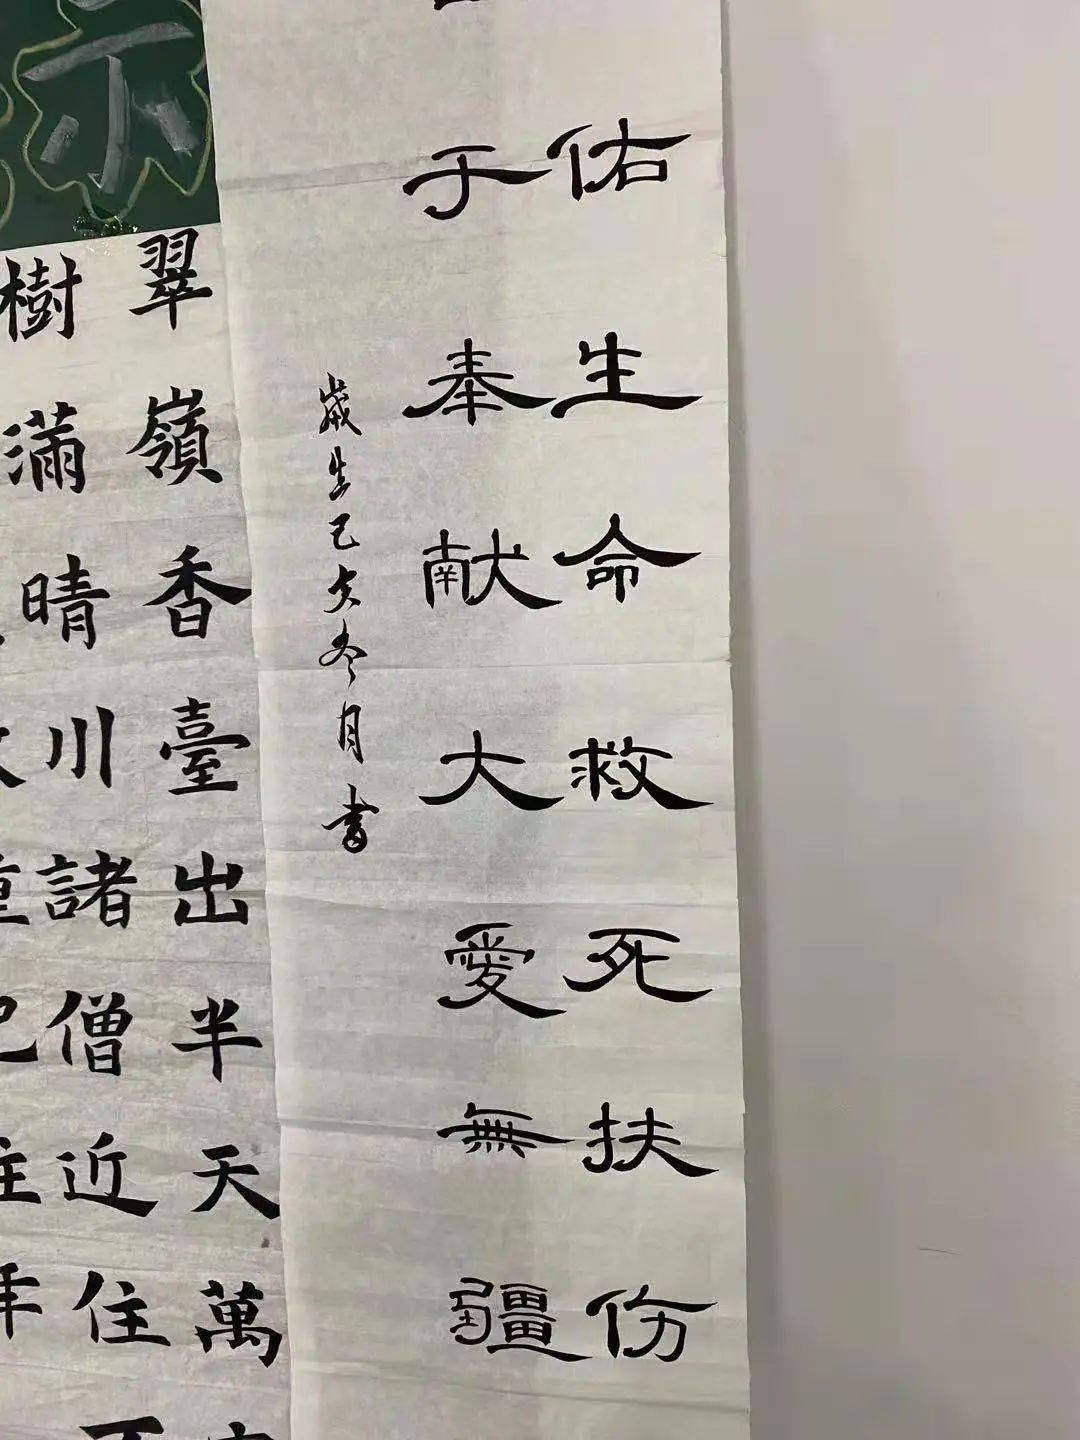 佑生命救死扶伤
于奉献大爱無疆
岁生己亥冬月書
翠嶺香臺出半天萬
樹滿晴川諸僧近住
示